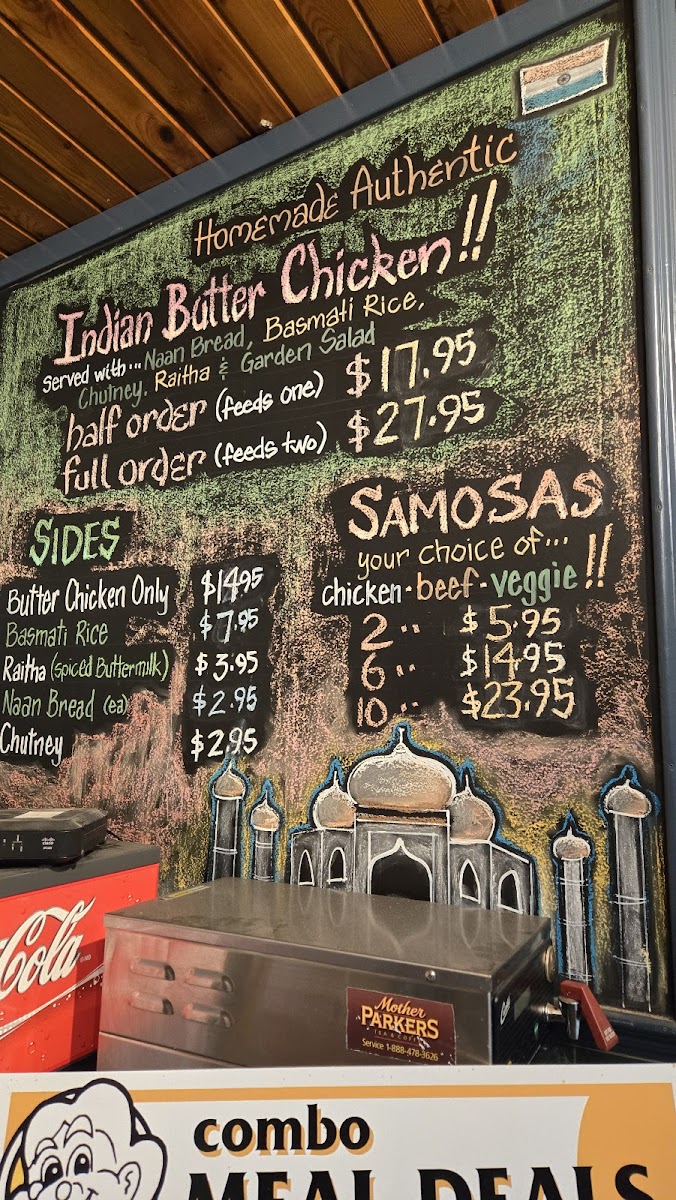 Homemade Authentic
Indian Butter Chicken!!
served with... Naan Bread, Basmati Rice,
Chutney, Raitha & Garden Salad
half order (feeds one) $17.95
full order (feeds two) $27.95
SIDES
Butter Chicken Only $14.95
Basmati Rice $7.95
Raitha (spiced Buttermilk) $3.95
Naan Bread (ea) $2.95
Chutney $2.95
SAMOSAS
your choice of...
chicken - beef - veggie!!
2 .. $5.95
6 .. $14.95
10 .. $23.95
cisco
Cola
Mother
PARKERS
TEA & COFFEE
Service 1-888-478-3626
combo
MEAL DEALS